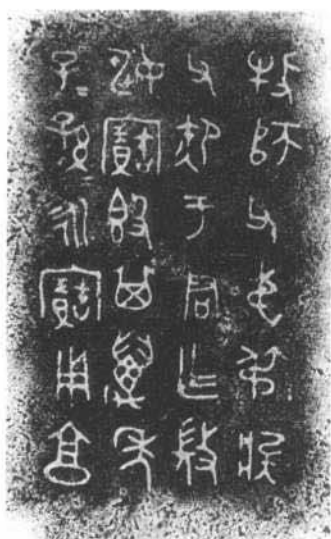 牧師父弟叔
父御于君乍微
姚寶簋其萬年
子=孫永寶用享